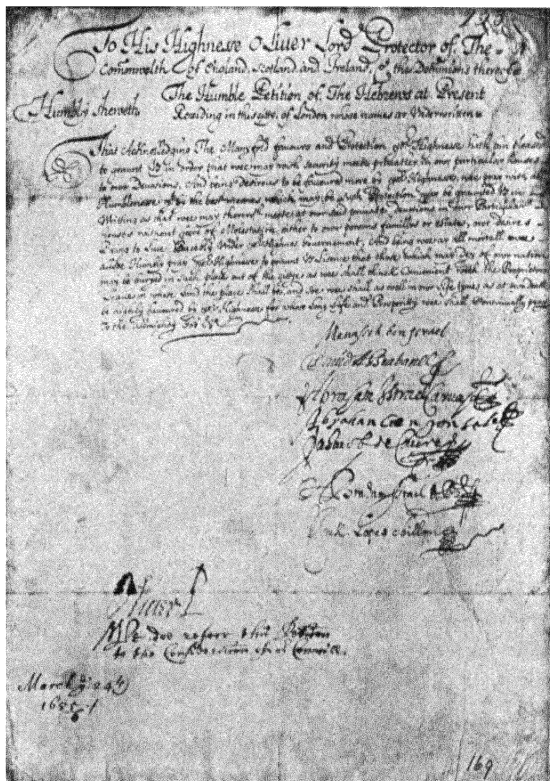 To His Highnesse Oliver Lord Protector of The
Comonwelth of England, Scotland and Ireland, & the Dominions thereof
The Humble Petition of The Hebrews at Present
Humbly Sheweth
Reziding in this citty of London whose names ar Underwritten
That Acknolledging The Manyfold favours and Protection yor Highnesse hath bin pleased
to graunt us in order that wee may with security meete privatley in our particular houses
to our Devosions, And being desirous to be favoured more by yor Highnesse, wee pray with
Humblenesse by the best meanes which may be such Protection may be graunted us in
Writing as that wee may therewth meete at our said private devosions in our Particular
houses without feere of Molestation either to our persons famillies or estates, our desires
Being to Live Peacebly Under yor Highnes Governement, And being wee ar all mortall wee
allsoe Humbly pray yor Highnesse to graunt us License that those which may dey of our nation
may be buryed in such place out of the cittye as wee shall thincke Convenient with the Proprietors
Leave in whose Land this place shall be, and soe wee shall as well in our Life tyme, as at our death
be highly favoured by yor Highnesse for whose Long Life and Prosperity wee shall Continually pray
To the Allmighty God
Menasseh ben Israel
David Abrabanel
Abraham Israel Carvajal
Abraham Coen Gonzales
Jahacob de Caceres
Abraham Israel
Isak Lopes Chillon
Oliver P
Wee doe referr this Peticon
to the Consideracon of or Councill.
March ye 24th
1655/6
169